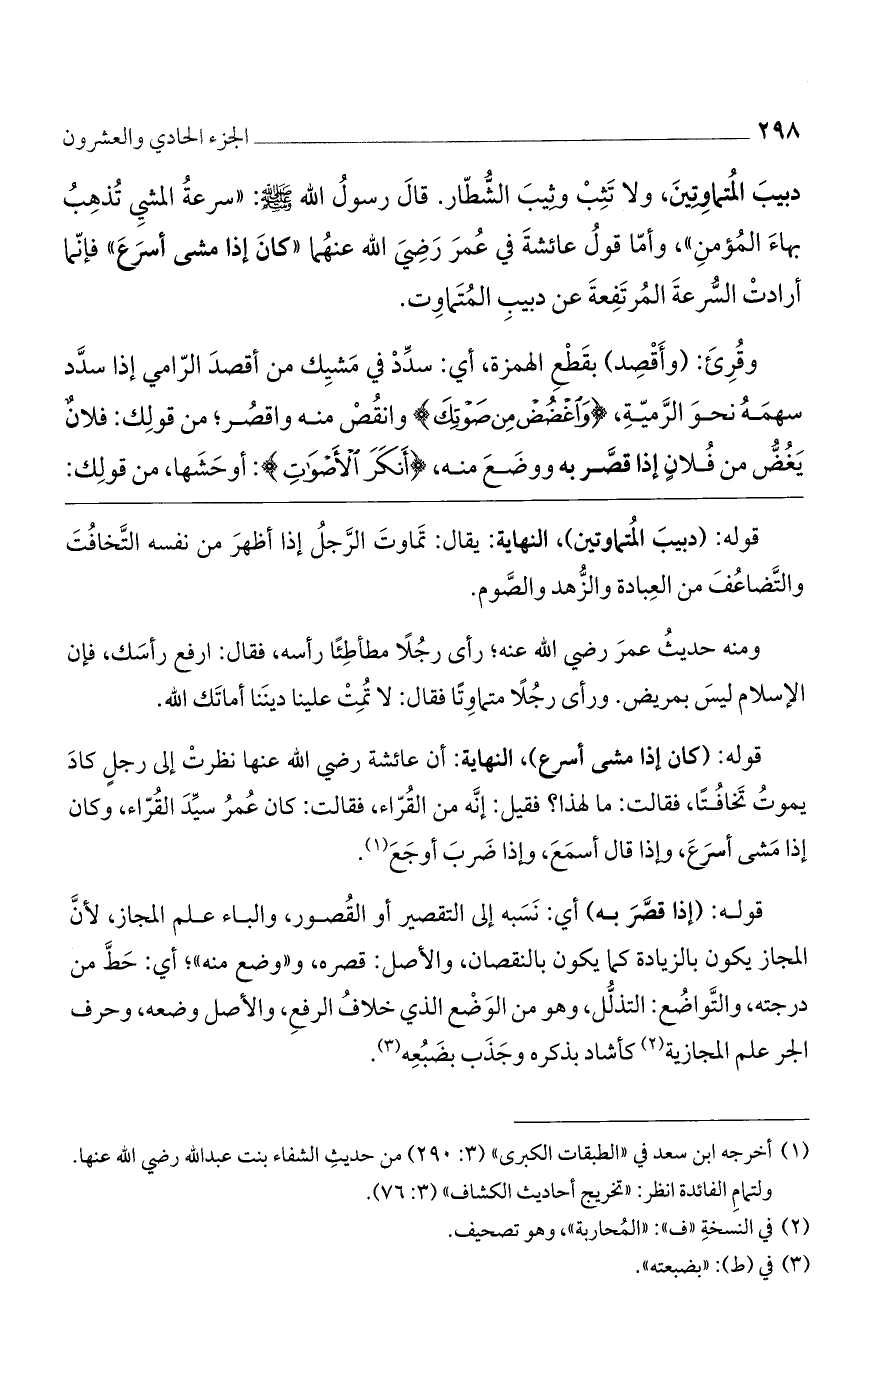 ٢٩٨ الجزء الحادي والعشرون
دبيبَ المُتماوِتِينَ، ولا تَثِبْ وثِيبَ الشُّطّار. قالَ رسولُ الله ﷺ: «سرعةُ المشيِ تُذهِبُ
بهاءَ المُؤمنِ»، وأمّا قولُ عائشةَ في عُمرَ رَضِيَ الله عنهُما «كانَ إذا مشى أسرَعَ» فإنّما
أرادتْ السُّرعةَ المُرتَفِعةَ عن دبيبِ المُتَماوِت.
وقُرِئَ: (وأَقْصِد) بقَطْعِ الهمزة، أي: سدِّدْ في مَشيِك من أقصدَ الرّامي إذا سدَّد
سهمَهُ نحوَ الرَّميّة، ﴿وَٱغْضُضْ مِن صَوْتِكَ﴾ وانقُصْ منه واقصُر؛ من قولِك: فلانٌ
يَغُضُّ من فُلانٍ إذا قصَّر به ووضَعَ منه، ﴿أَنكَرَ ٱلْأَصْوَٰتِ﴾: أوحَشَها، من قولِك:
قوله: (دبيبَ المُتماوتين)، النهاية: يقال: تماوتَ الرَّجلُ إذا أظهرَ من نفسه التَّخافُتَ
والتَّضاعُفَ من العِبادة والزُّهد والصَّوم.
ومنه حديثُ عمرَ رضي الله عنه؛ رأى رجُلًا مطأطِئًا رأسه، فقال: ارفع رأسَك، فإن
الإسلام ليسَ بمريض. ورأى رجُلًا متماوِتًا فقال: لا تُمِتْ علينا دينَنا أماتَك الله.
قوله: (كان إذا مشى أسرع)، النهاية: أن عائشة رضي الله عنها نظرتْ إلى رجلٍ كادَ
يموتُ تَخافُتًا، فقالت: ما لهذا؟ فقيل: إنَّه من القُرّاء، فقالت: كان عُمرُ سيِّدَ القُرّاء، وكان
إذا مَشى أسرَعَ، وإذا قال أسمَعَ، وإذا ضَربَ أوجَعَ(١).
قوله: (إذا قصَّرَ به) أي: نَسَبه إلى التقصير أو القُصور، والباء علم المجاز، لأنَّ
المجاز يكون بالزيادة كما يكون بالنقصان، والأصل: قصره، و«وضع منه»؛ أي: حَطَّ من
درجته، والتَّواضُع: التذلُّل، وهو من الوَضْع الذي خلافُ الرفعِ، والأصل وضعه، وحرف
الجر علم المجازية(٢) كأشاد بذكره وجَذَب بضَبْعِه(٣).
(١) أخرجه ابن سعد في «الطبقات الكبرى» (٣: ٢٩٠) من حديثِ الشفاء بنت عبدالله رضي الله عنها.
ولتمامِ الفائدة انظر: «تخريج أحاديث الكشاف» (٣: ٧٦).
(٢) في النسخةِ «ف»: «المُحاربة»، وهو تصحيف.
(٣) في (ط): «بضبعته».